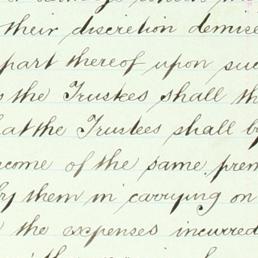 their discretion demise
part thereof upon suc
the Trustees shall th
at the Trustees shall b
come of the same prem
by them in carrying on
the expenses incurred